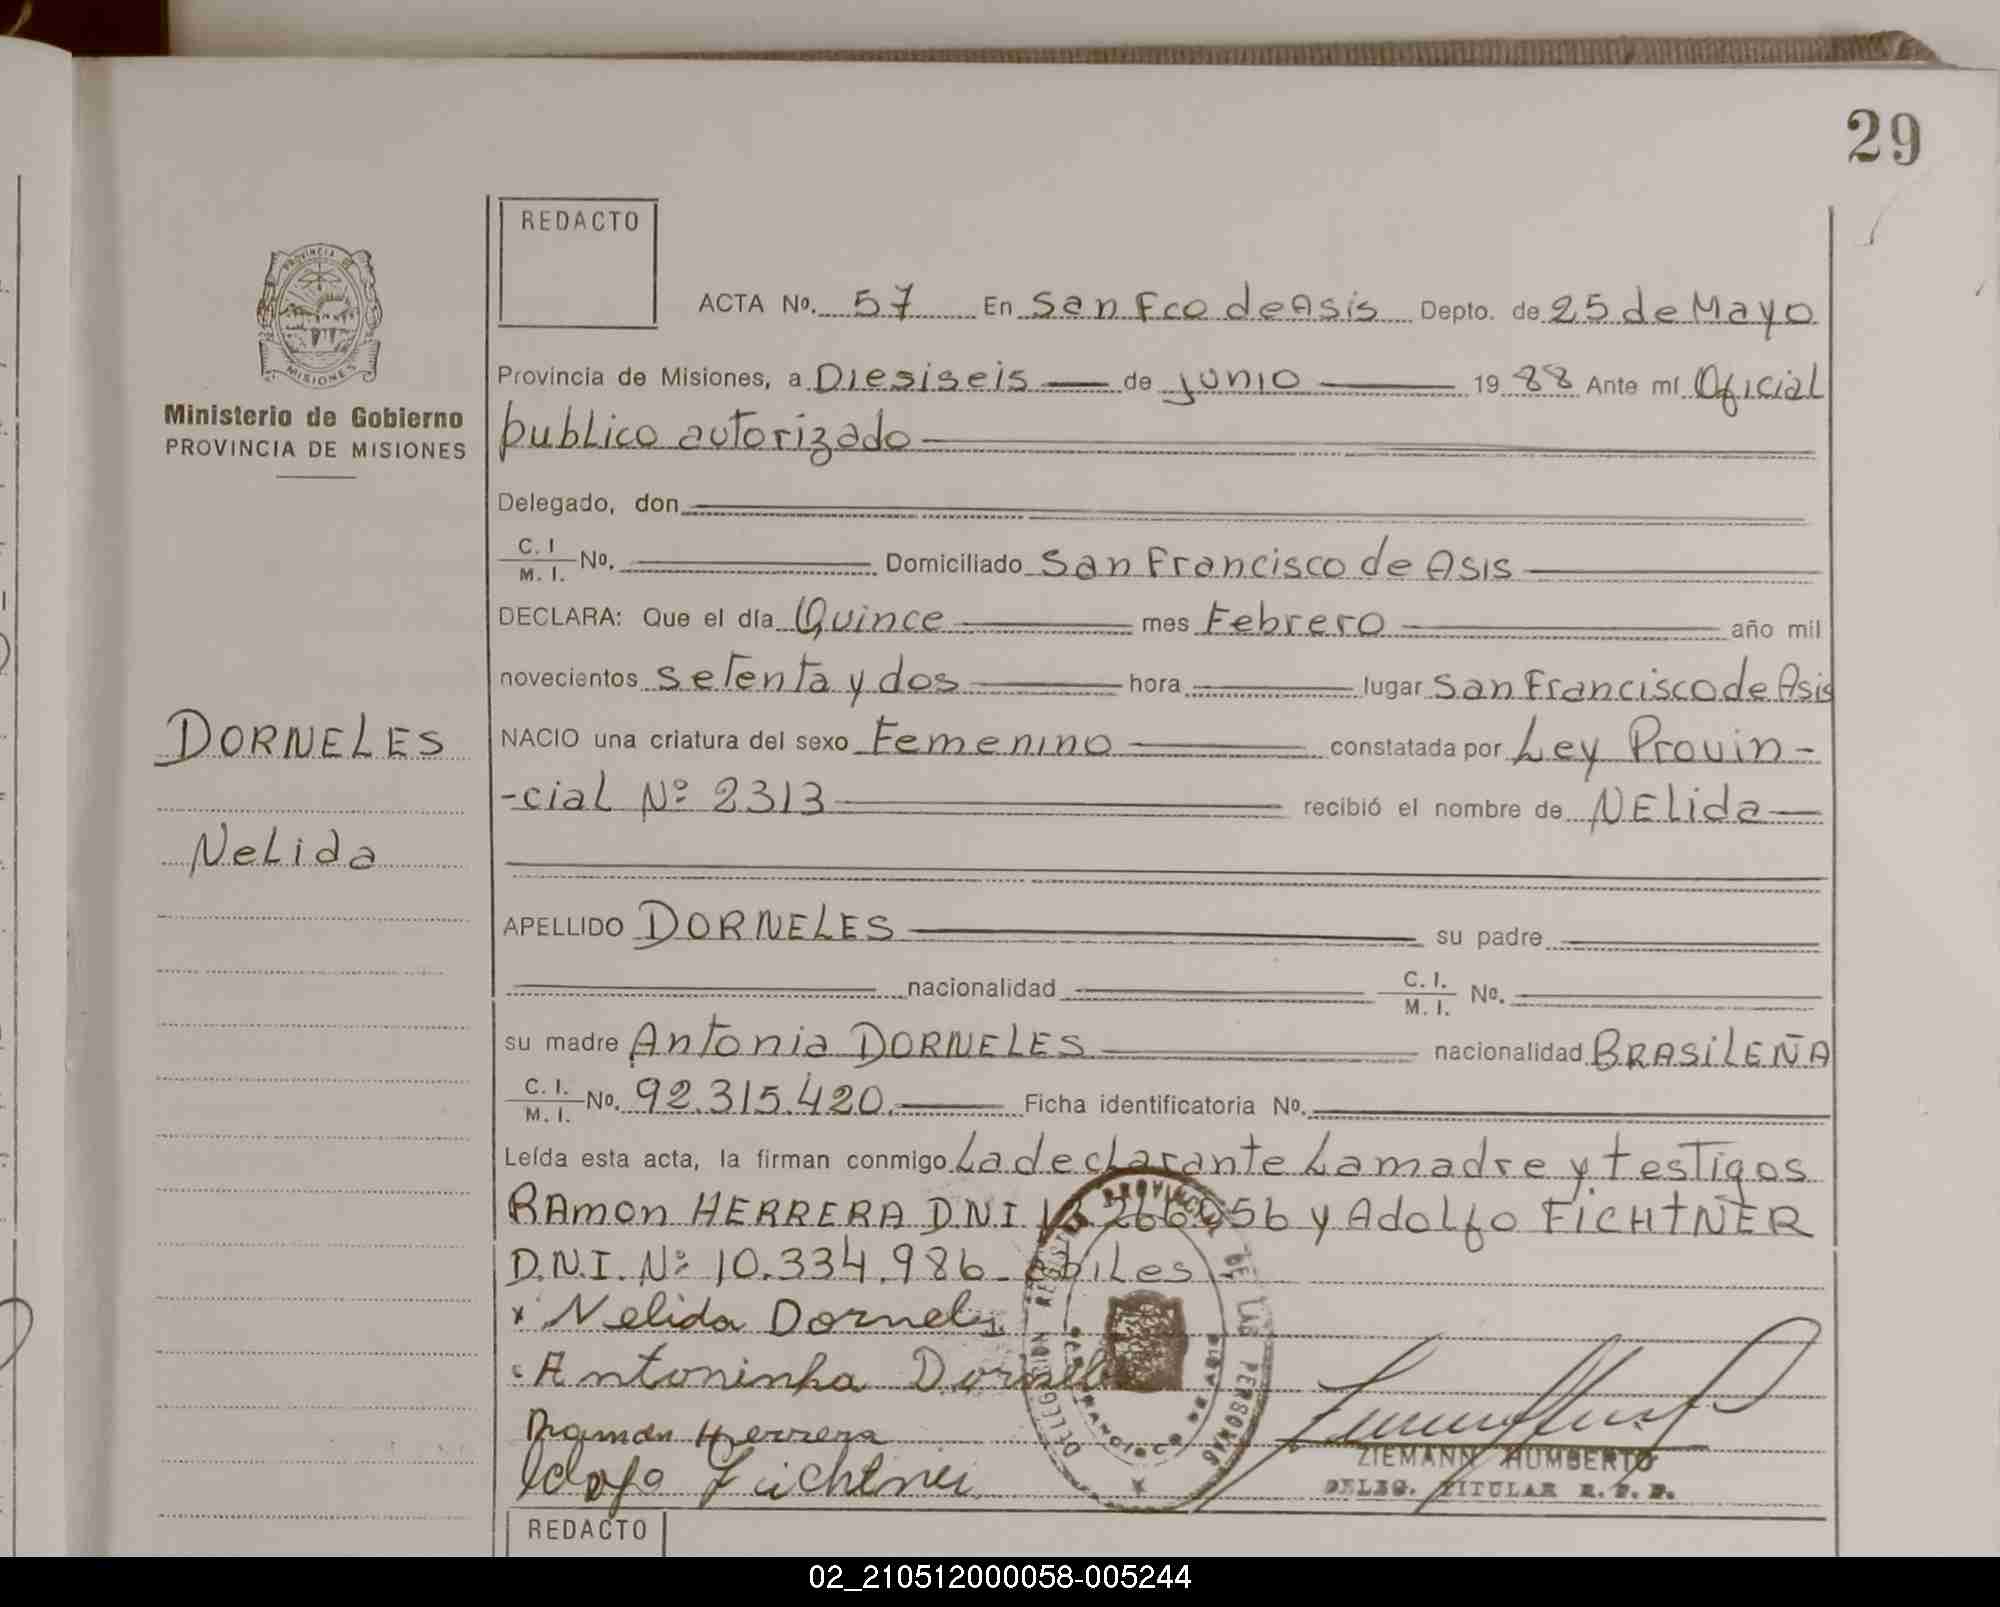 29
REDACTO
PROVINCIA DE
MISIONES
Ministerio de Gobierno
PROVINCIA DE MISIONES
ACTA Nº. 57 En San Fco de Asis Depto. de 25 de Mayo
Provincia de Misiones, a Diesiseis de junio 1988 Ante mí Oficial
publico autorizado
Delegado, don
C. I / M. I. Nº. Domiciliado San Francisco de Asis
DECLARA: Que el día Quince mes Febrero año mil
novecientos setenta y dos hora lugar San Francisco de Asis
NACIO una criatura del sexo Femenino constatada por Ley Provin-
-cial Nº 2313 recibió el nombre de NELida
DORNELES
NeLida
APELLIDO DORNELES su padre
nacionalidad C. I. / M. I. Nº.
su madre Antonia DORNELES nacionalidad BRASiLEÑA
C. I. / M. I. Nº. 92.315.420. Ficha identificatoria Nº.
Leída esta acta, la firman conmigo La declarante La madre y testigos
RAmon HERRERA D.N.I 13.266056 y Adolfo FiCHtNER
D.N.I. Nº 10.334.986 - abiLes
x Nelida Dorneles
Antoninha Dornel
Ramon Herrera
Fichtner
PROVINCIAL DE LAS PERSONAS
DELEGACION
FRANCISCO DE ASIS
ZIEMANN HUMBERTO
DELEG. TITULAR R. P. P.
REDACTO
02_210512000058-005244